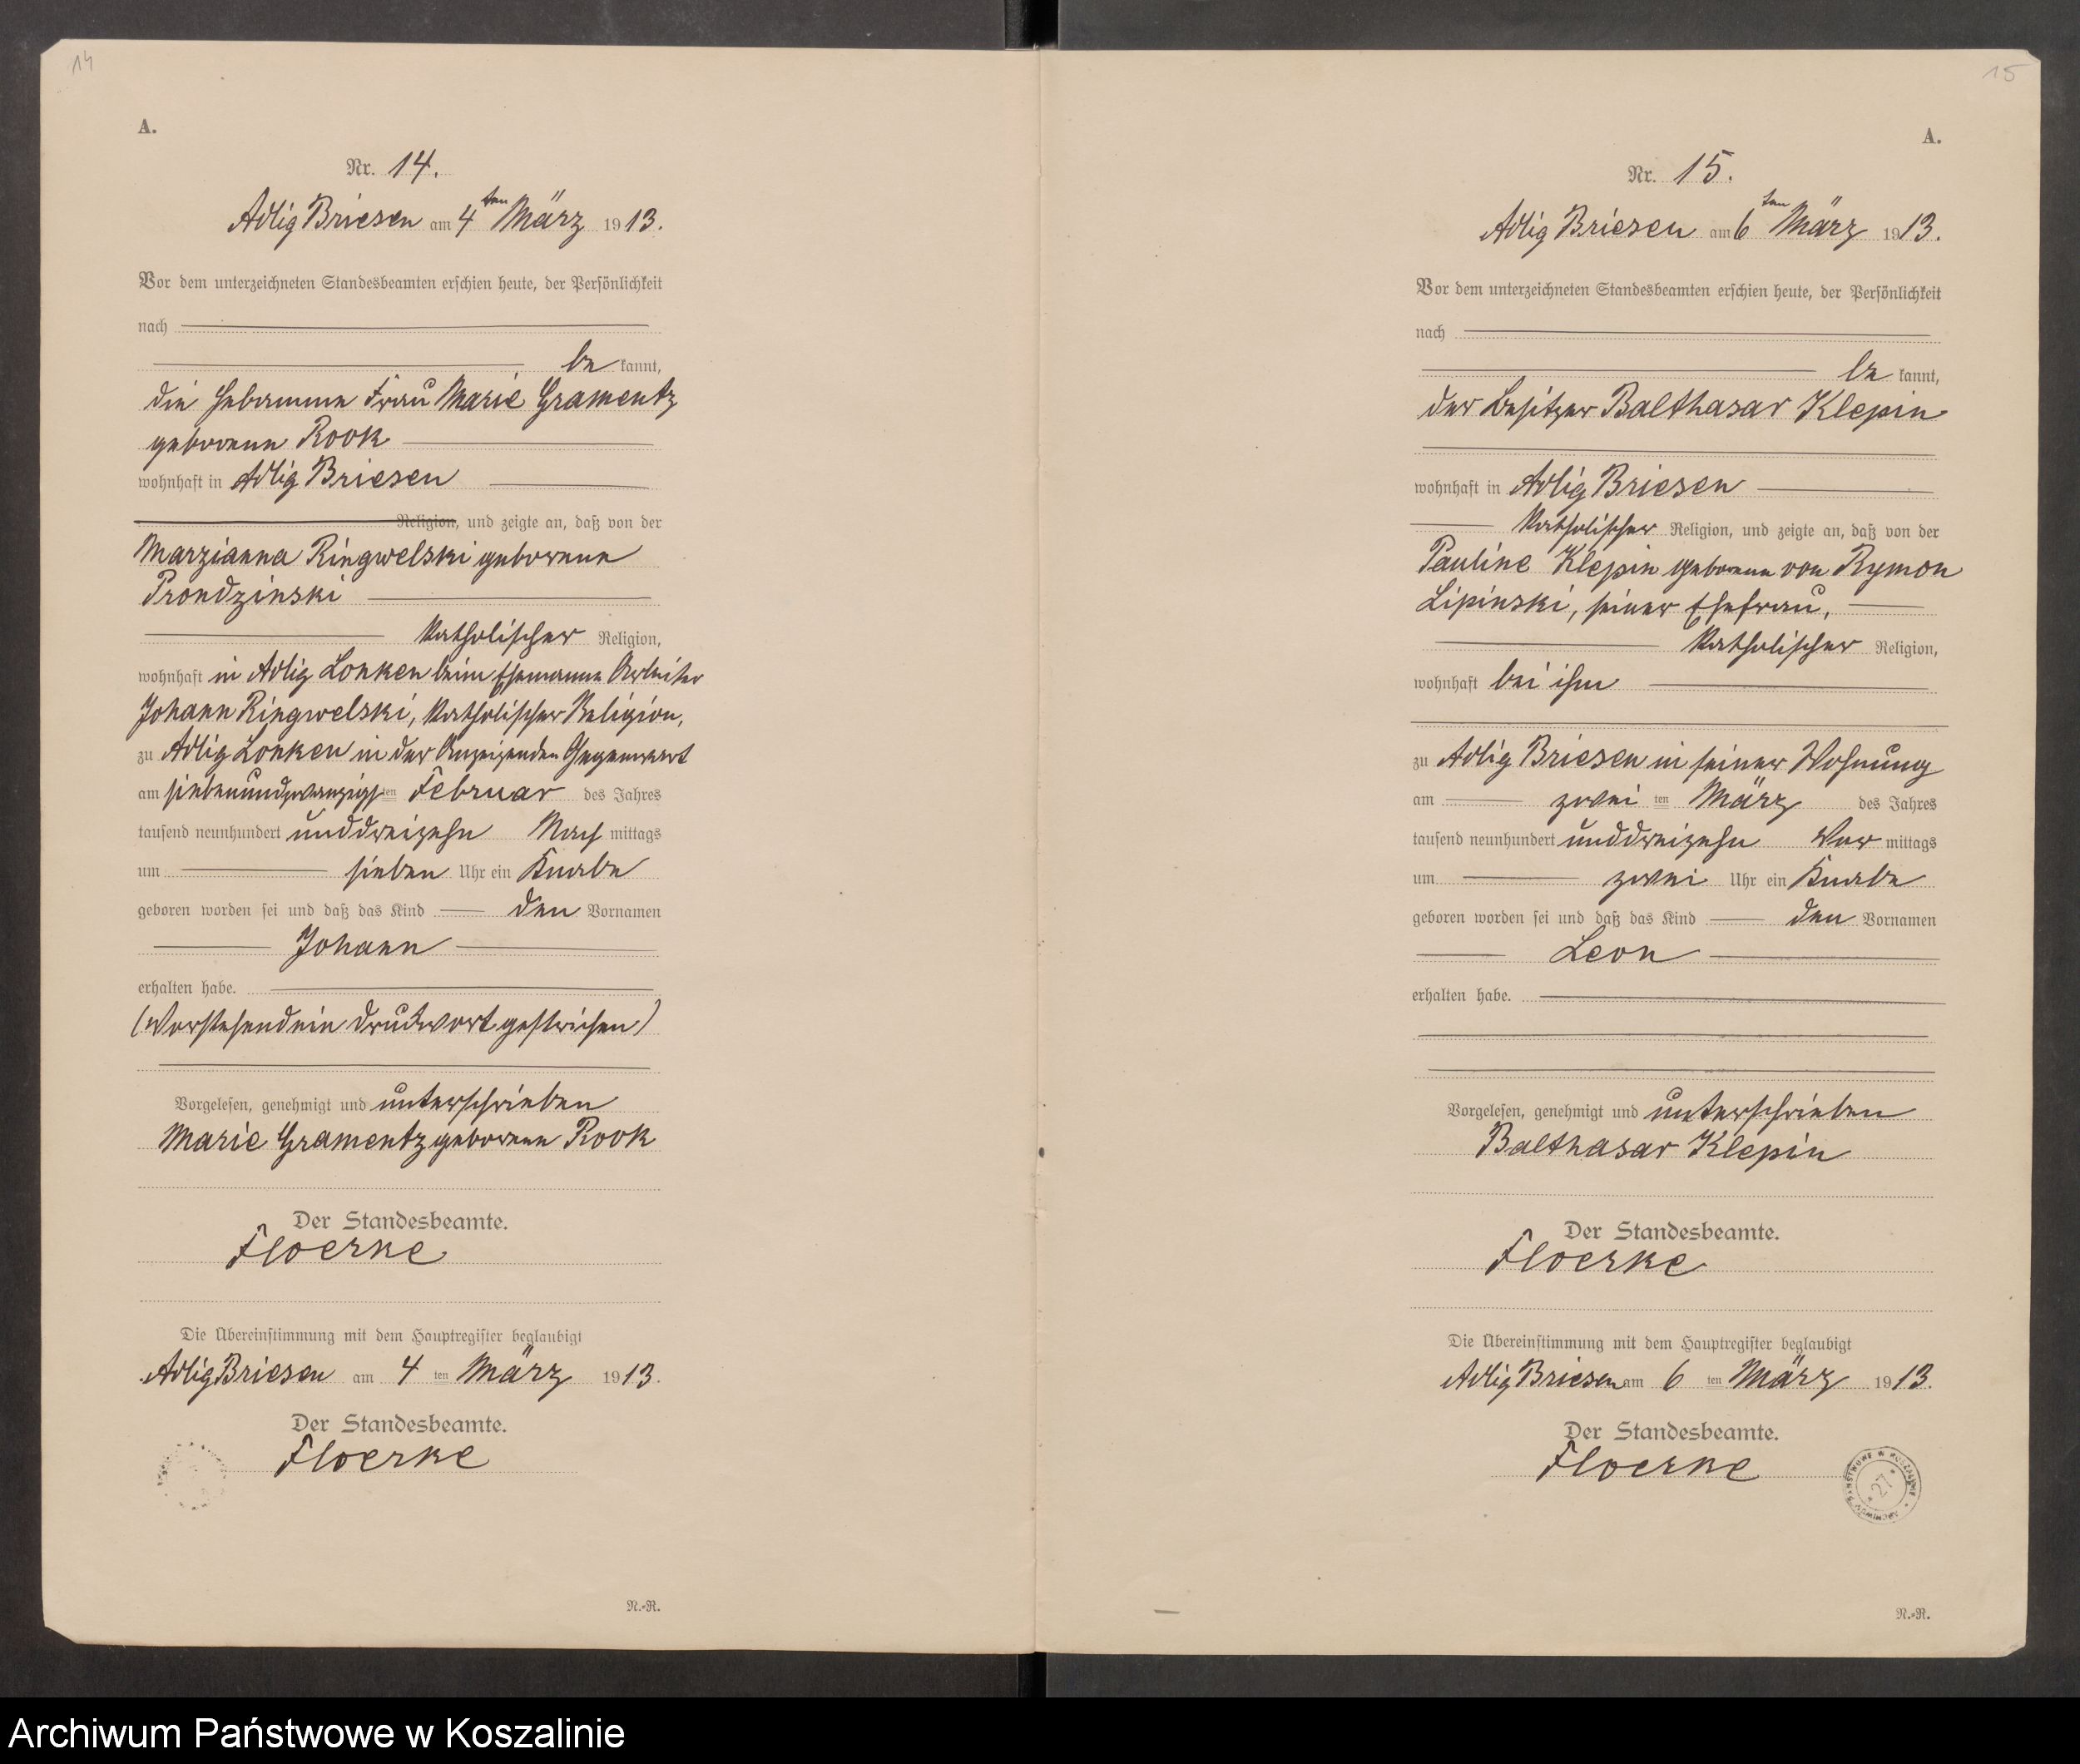 14
A.
Nr. 14.
Adlig Briesen am 4ten März 1913.
Vor dem unterzeichneten Standesbeamten erschien heute, der Persönlichkeit
nach
be kannt,
die Hebamme Frau Marie Gramentz
geborene Rook
wohnhaft in Adlig Briesen
Religion, und zeigte an, daß von der
Marzianna Ringwelski geborene
Prondzinski
katholischer Religion,
wohnhaft in Adlig Lonken beim Ehemanne Arbeiter
Johann Ringwelski, katholischer Religion,
zu Adlig Lonken in der Anzeigenden Gegenwart
am siebenundzwanzigsten Februar des Jahres
tausend neunhundert unddreizehn Nach mittags
um sieben Uhr ein Knabe
geboren worden sei und daß das Kind den Vornamen
Johann
erhalten habe.
(Vorstehend ein Druckwort gestrichen)
Vorgelesen, genehmigt und unterschrieben
Marie Gramentz geborene Rook
Der Standesbeamte.
Floerke
Die Übereinstimmung mit dem Hauptregister beglaubigt
Adlig Briesen am 4 ten März 1913.
Der Standesbeamte.
Floerke
N.-R.
15
A.
Nr. 15.
Adlig Briesen am 6ten März 1913.
Vor dem unterzeichneten Standesbeamten erschien heute, der Persönlichkeit
nach
be kannt,
der Besitzer Balthasar Klepin
wohnhaft in Adlig Briesen
katholischer Religion, und zeigte an, daß von der
Pauline Klepin geborene von Rymon
Lipinski, seiner Ehefrau,
katholischer Religion,
wohnhaft bei ihm
zu Adlig Briesen in seiner Wohnung
am zwei ten März des Jahres
tausend neunhundert unddreizehn Vor mittags
um zwei Uhr ein Knabe
geboren worden sei und daß das Kind den Vornamen
Leon
erhalten habe.
Vorgelesen, genehmigt und unterschrieben
Balthasar Klepin
Der Standesbeamte.
Floerke
Die Übereinstimmung mit dem Hauptregister beglaubigt
Adlig Briesen am 6 ten März 1913.
Der Standesbeamte.
Floerke
ARCHIWUM PAŃSTWOWE W KOSZALINIE
* 27 *
N.-R.
Archiwum Państwowe w Koszalinie